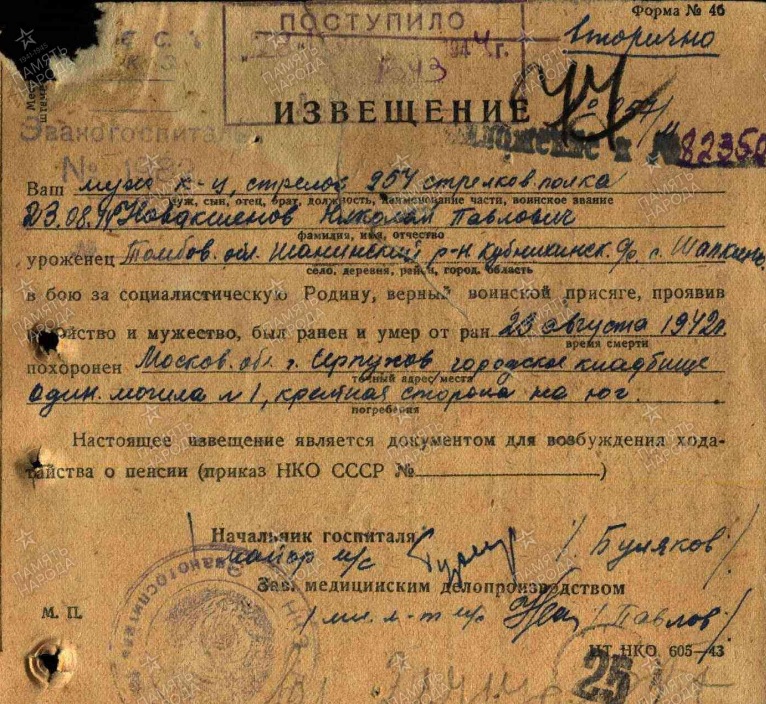 Форма № 46
ПОСТУПИЛО
194 4 г.
вторично
ИЗВЕЩЕНИЕ
Эвакогоспиталь
№
82350
Ваш муж к-ц, стрелок 257 стрелков. полка
муж, сын, отец, брат, должность, наименование части, воинское звание
Николай Павлович
фамилия, имя, отчество
уроженец Тамбов. обл. р-н
село, деревня, район, город, область
в бою за социалистическую Родину, верный воинской присяге, проявив
геройство и мужество, был ранен и умер от ран 23 августа 1942г.
время смерти
похоронен Москов. обл. г. Серпухов городское кладбище
точный адрес места
один. могила №1, крайная сторона на юг.
погребения
Настоящее извещение является документом для возбуждения хода-
тайства о пенсии (приказ НКО СССР № )
Начальник госпиталя
майор м/с / Буляков /
Зав. медицинским делопроизводством
/ мл. л-т м/с / Павлов /
М. П.
Эвакогоспиталь
НТ НКО 605—43
25